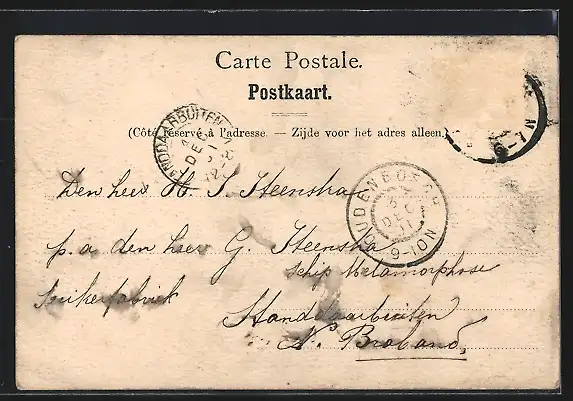 Carte Postale.
Postkaart.
(Côté réservé à l'adresse. — Zijde voor het adres alleen.)
STANDDAARBUITEN
DEC
12-8
OUDENBOSCH
6 DEC 01
9-10N
Den heer H. J. Steenstra
p. a den heer G. Steenstra
schip Metamorphose
Suikerfabriek
Standdaarbuiten
N. Braband,